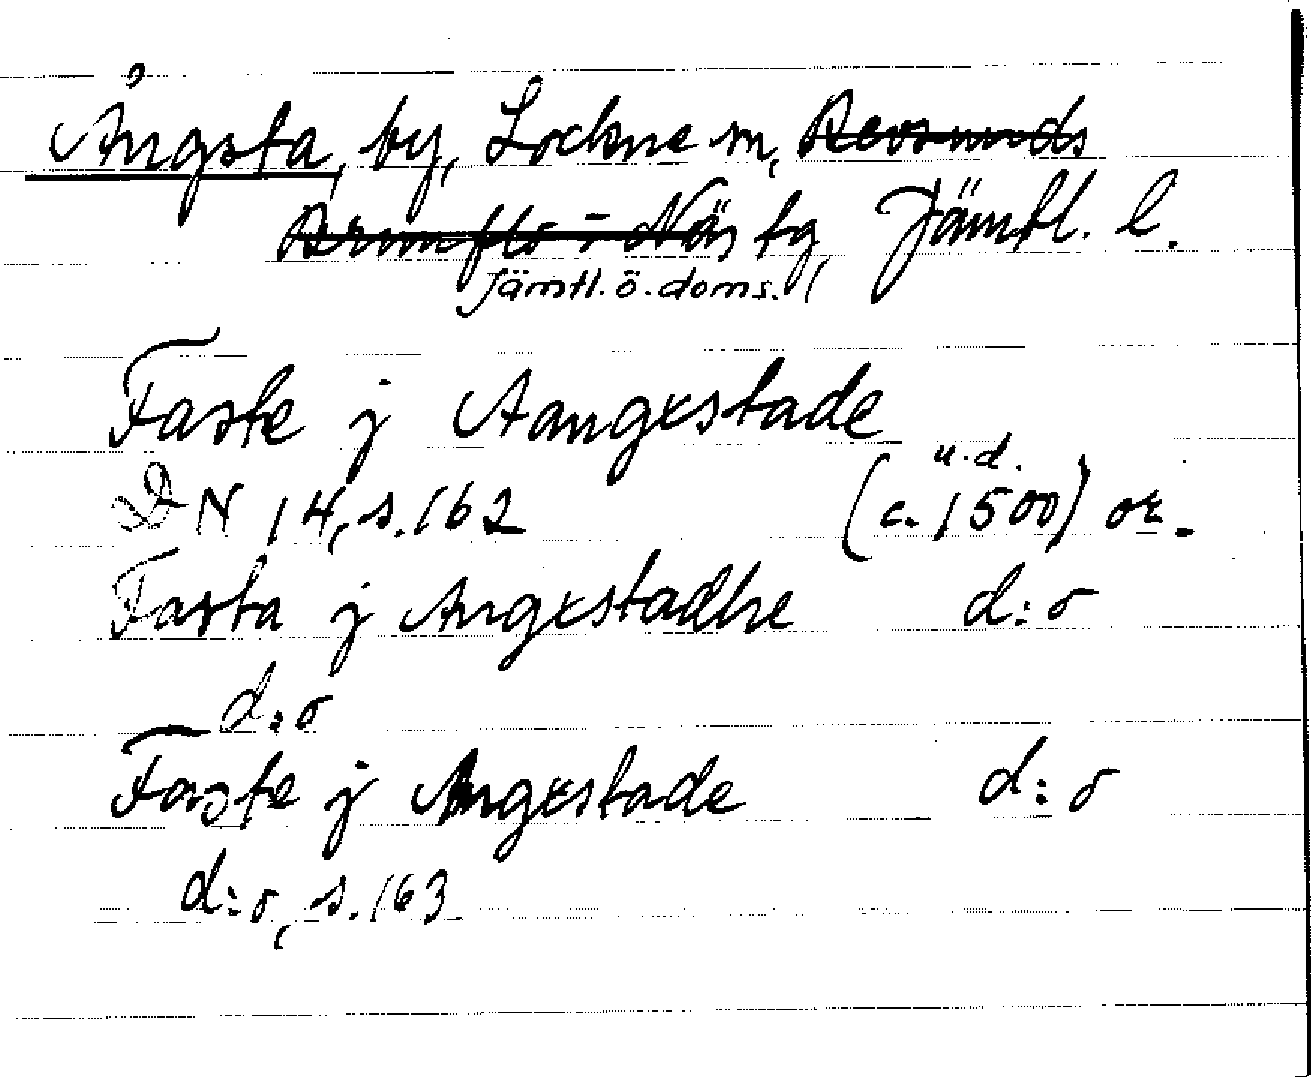 Ångsta, by, Lockne sn, Revsunds
Brunflo o Näs tg, Jämtl. l.
Jämtl. ö. doms.
Faste j Aangestade
u.d.
DN 14, s. 162 (c. 1500) or.
Fasta j Angestadhe d:o
d:o
Faste j Angestade d:o
d:o, s. 163